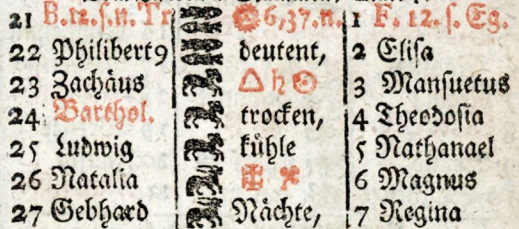 21 B. 12. s. n. Tr 6,37. n. 1 F. 12. s. Eg.
22 Philibert9 deutent, 2 Elisa
23 Zachäus △ ♄ ☉ 3 Mansuetus
24 Barthol. trocken, 4 Theodosia
25 Ludwig kühle 5 Nathanael
26 Natalia 6 Magnus
27 Gebhard Nächte, 7 Regina